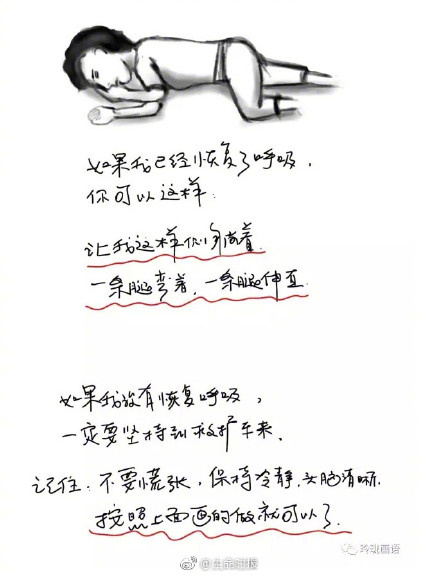 如果我已经恢复了呼吸，
你可以这样：
让我这样侧躺着
一条腿弯着，一条腿伸直
如果我没有恢复呼吸，
一定要坚持到救护车来。
记住：不要慌张，保持冷静，头脑清晰，
按照上面画的做就可以了。
玲珑画语